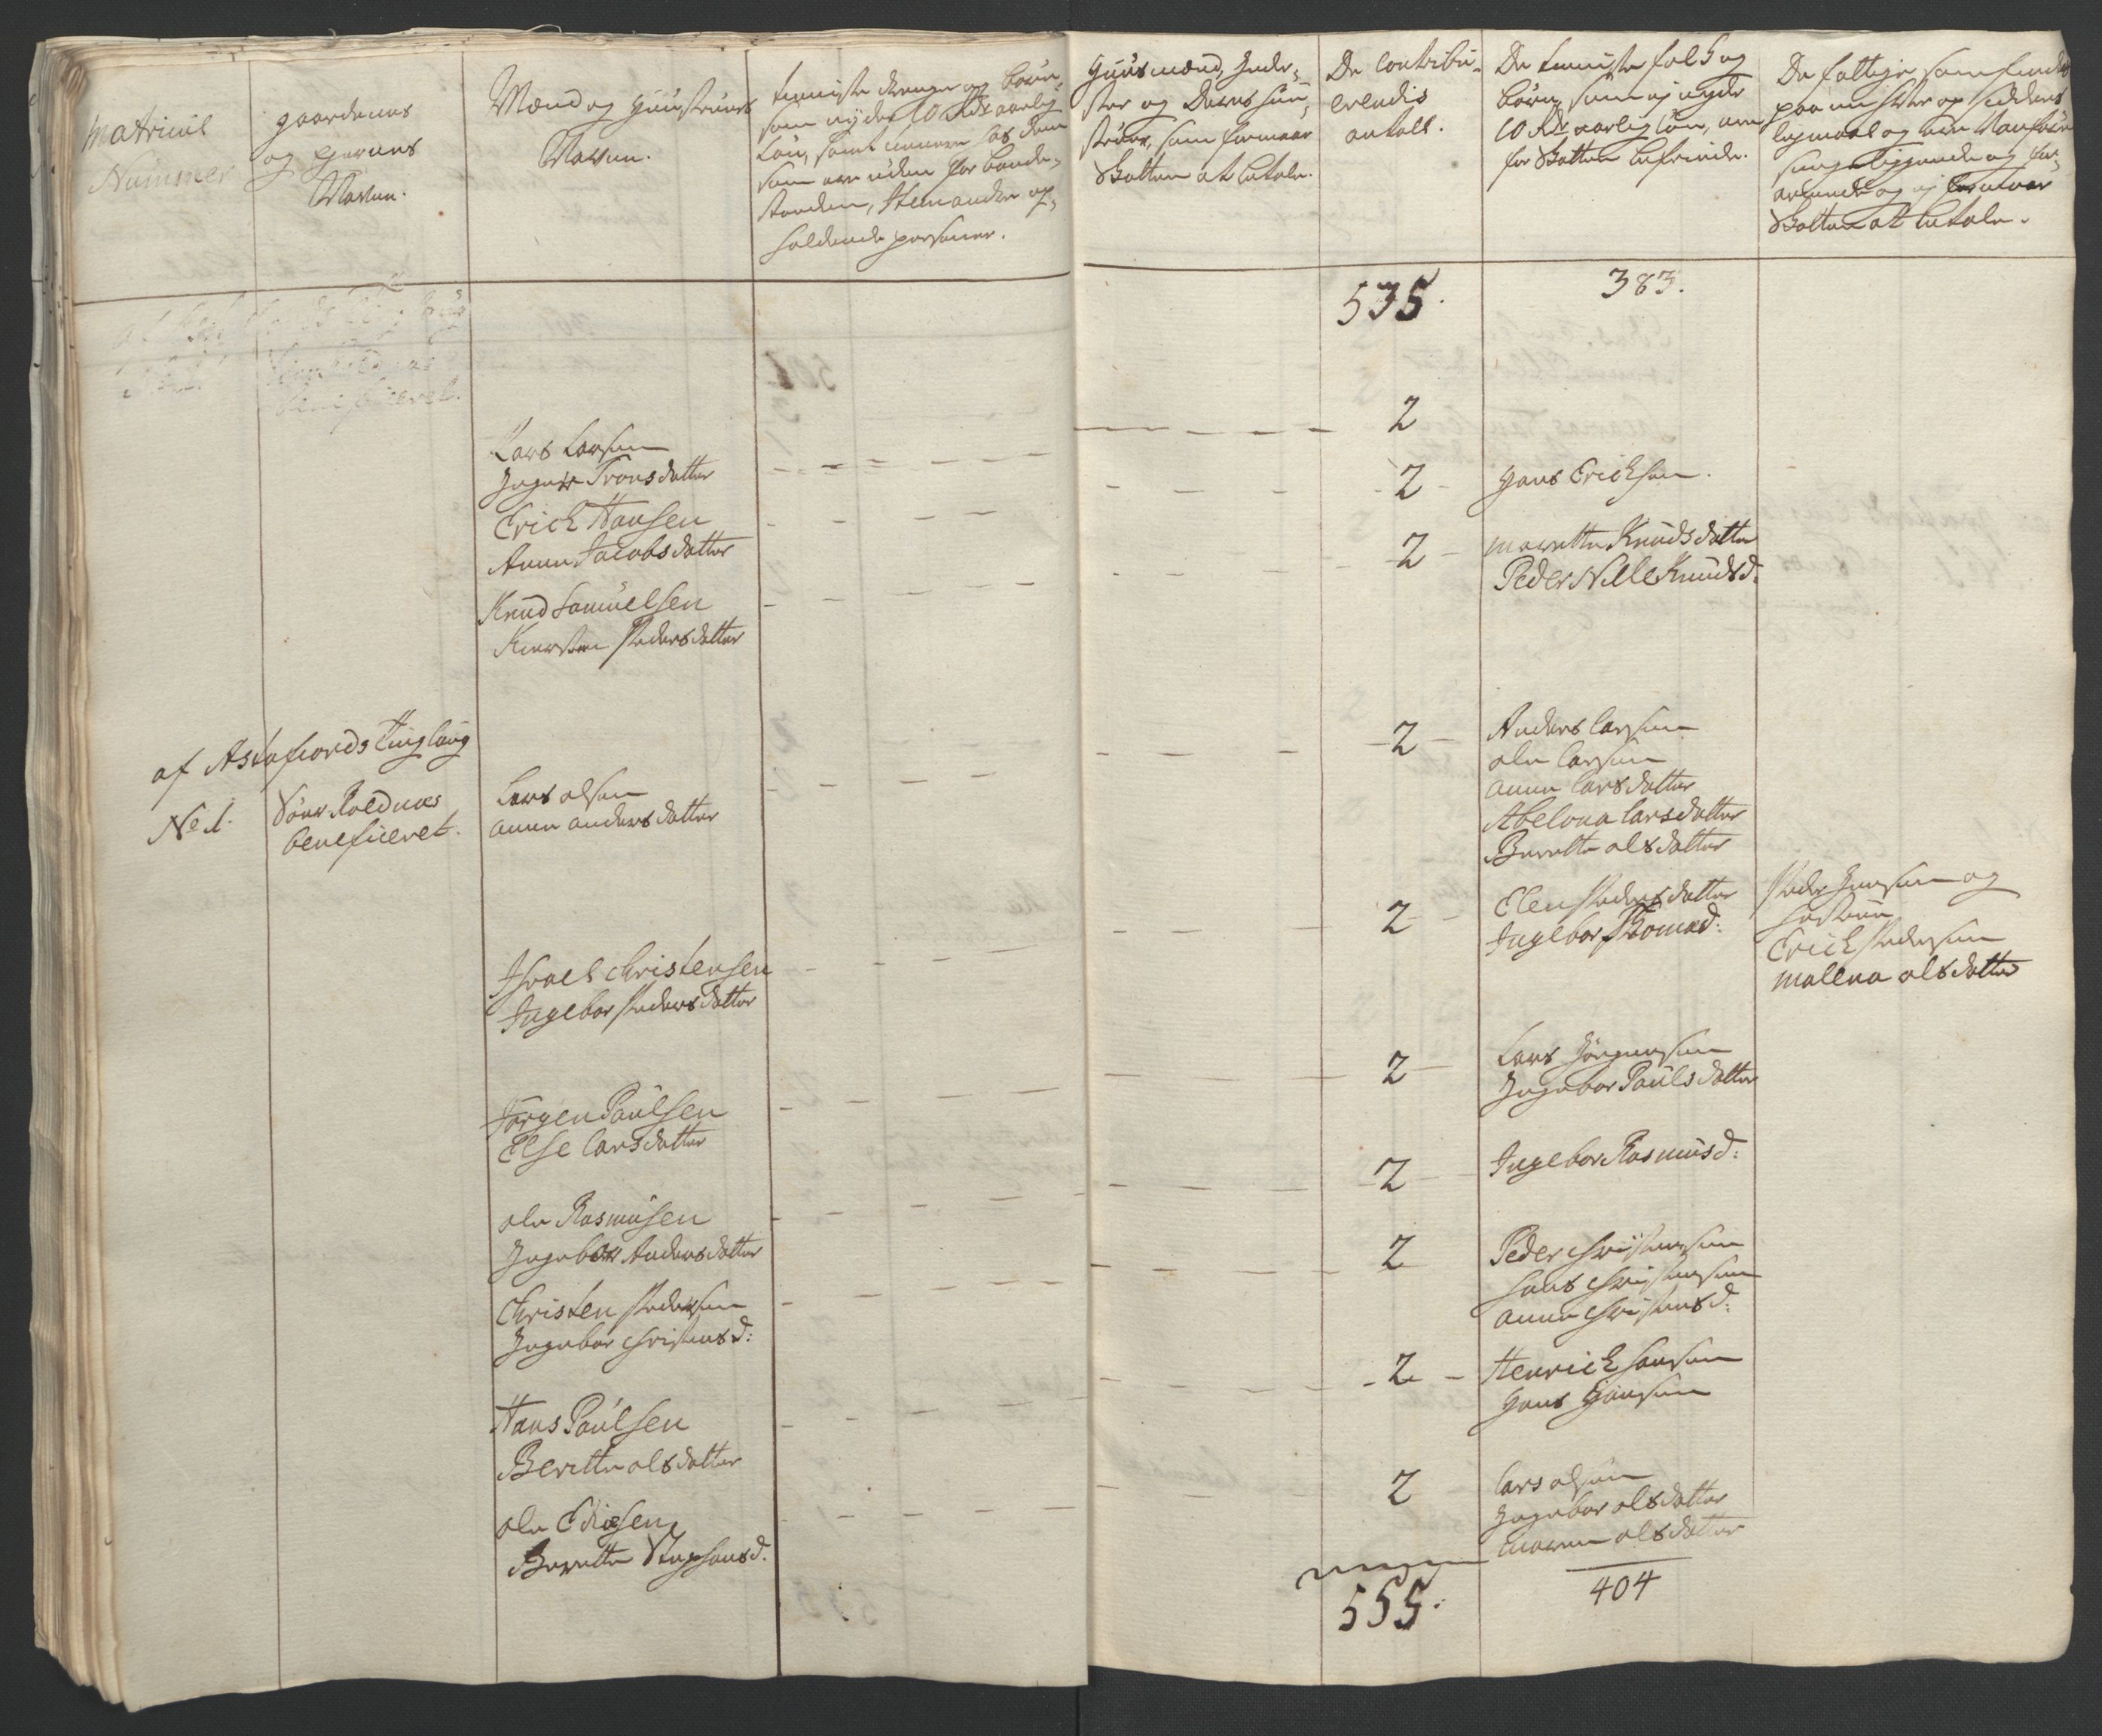 Matricul
Nummer
gaardenes
og Pladsernes
Navne.
Mænd og Huustruers
Navne.
tienniste drenge og Børn
som nyder 10 Rdr aarlig
Løn, samt
som ere uden for bonde-
standen, Item andre op-
holdende personer.
Huusmænd, Inder-
ster og Deres Huu-
struer, som formaar
Skatten at betale.
De Contribu-
erendis
antall.
De tienniste folk og
børn, som ej nyder
10 Rdr aarlig Løn, ere
for Skatten befriede.
De fattige som findes
paa
lægmaal og
senge liggende og
og ej formaar
Skatten at betale.
535.
383.
Lars Larsen
Inger Tronsdatter
2
Erich Hansen
Anne Jacobsdatter
2
Hans Erichsen.
Knud Samuelsen
Kiersten Pedersdatter
2
Marette Knudsdatter
Peder Nille Knudsd:
af Astafiords Tinglaug
No 1.
Söer Roldnæs
beneficeret.
Lars olsen
anne andersdatter
2
Anders Larsen
ole Larsen
anne Larsdatter
Abelona Larsdatter
Berette olsdatter
Israel Christensen
Ingebor Pedersdatter
2
Elen Pedersdatter
Ingebor Thomasd:
Peder Hansen og
hustrue
Erich Pedersen
Malena olsdatter
Jörgen Paulsen
Else Larsdatter
2
Lars Jörgensen
Ingebor Paulsdatter
ole Rasmusen
Ingebor Andersdatter
2
Ingebor Rasmusd:
Christen Pedersen
Ingebor Christensd:
2
Peder Christensen
Hans Christensen
anne Christensd:
Hans Paulsen
Beritte olsdatter
2
Henrich Hansen
Hans Hansen
ole Eliasen
Berette Stephensd.
2
Lars olsen
Ingebor olsdatter
Maren olsdatter
555.
404